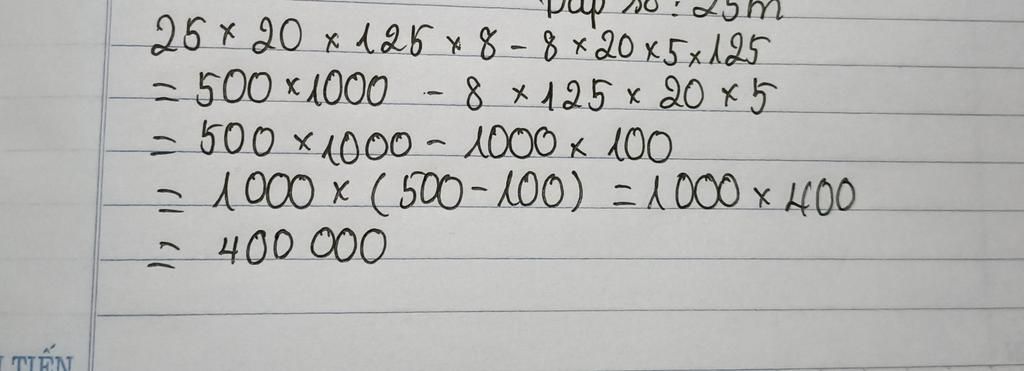 Đáp số: 25m
25 × 20 × 125 × 8 - 8 × 20 × 5 × 125
= 500 × 1000 - 8 × 125 × 20 × 5
= 500 × 1000 - 1000 × 100
= 1000 × (500 - 100) = 1000 × 400
= 400 000
TIẾN